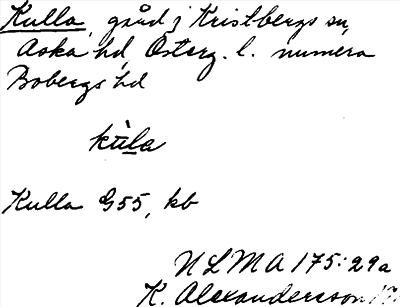 Kulla, gård j Kristbergs sn,
Aska hd, Österg. l. numera
Bobergs hd
kùla
Kulla G55, kb
NLMA 175:29a
K. Alexandersson